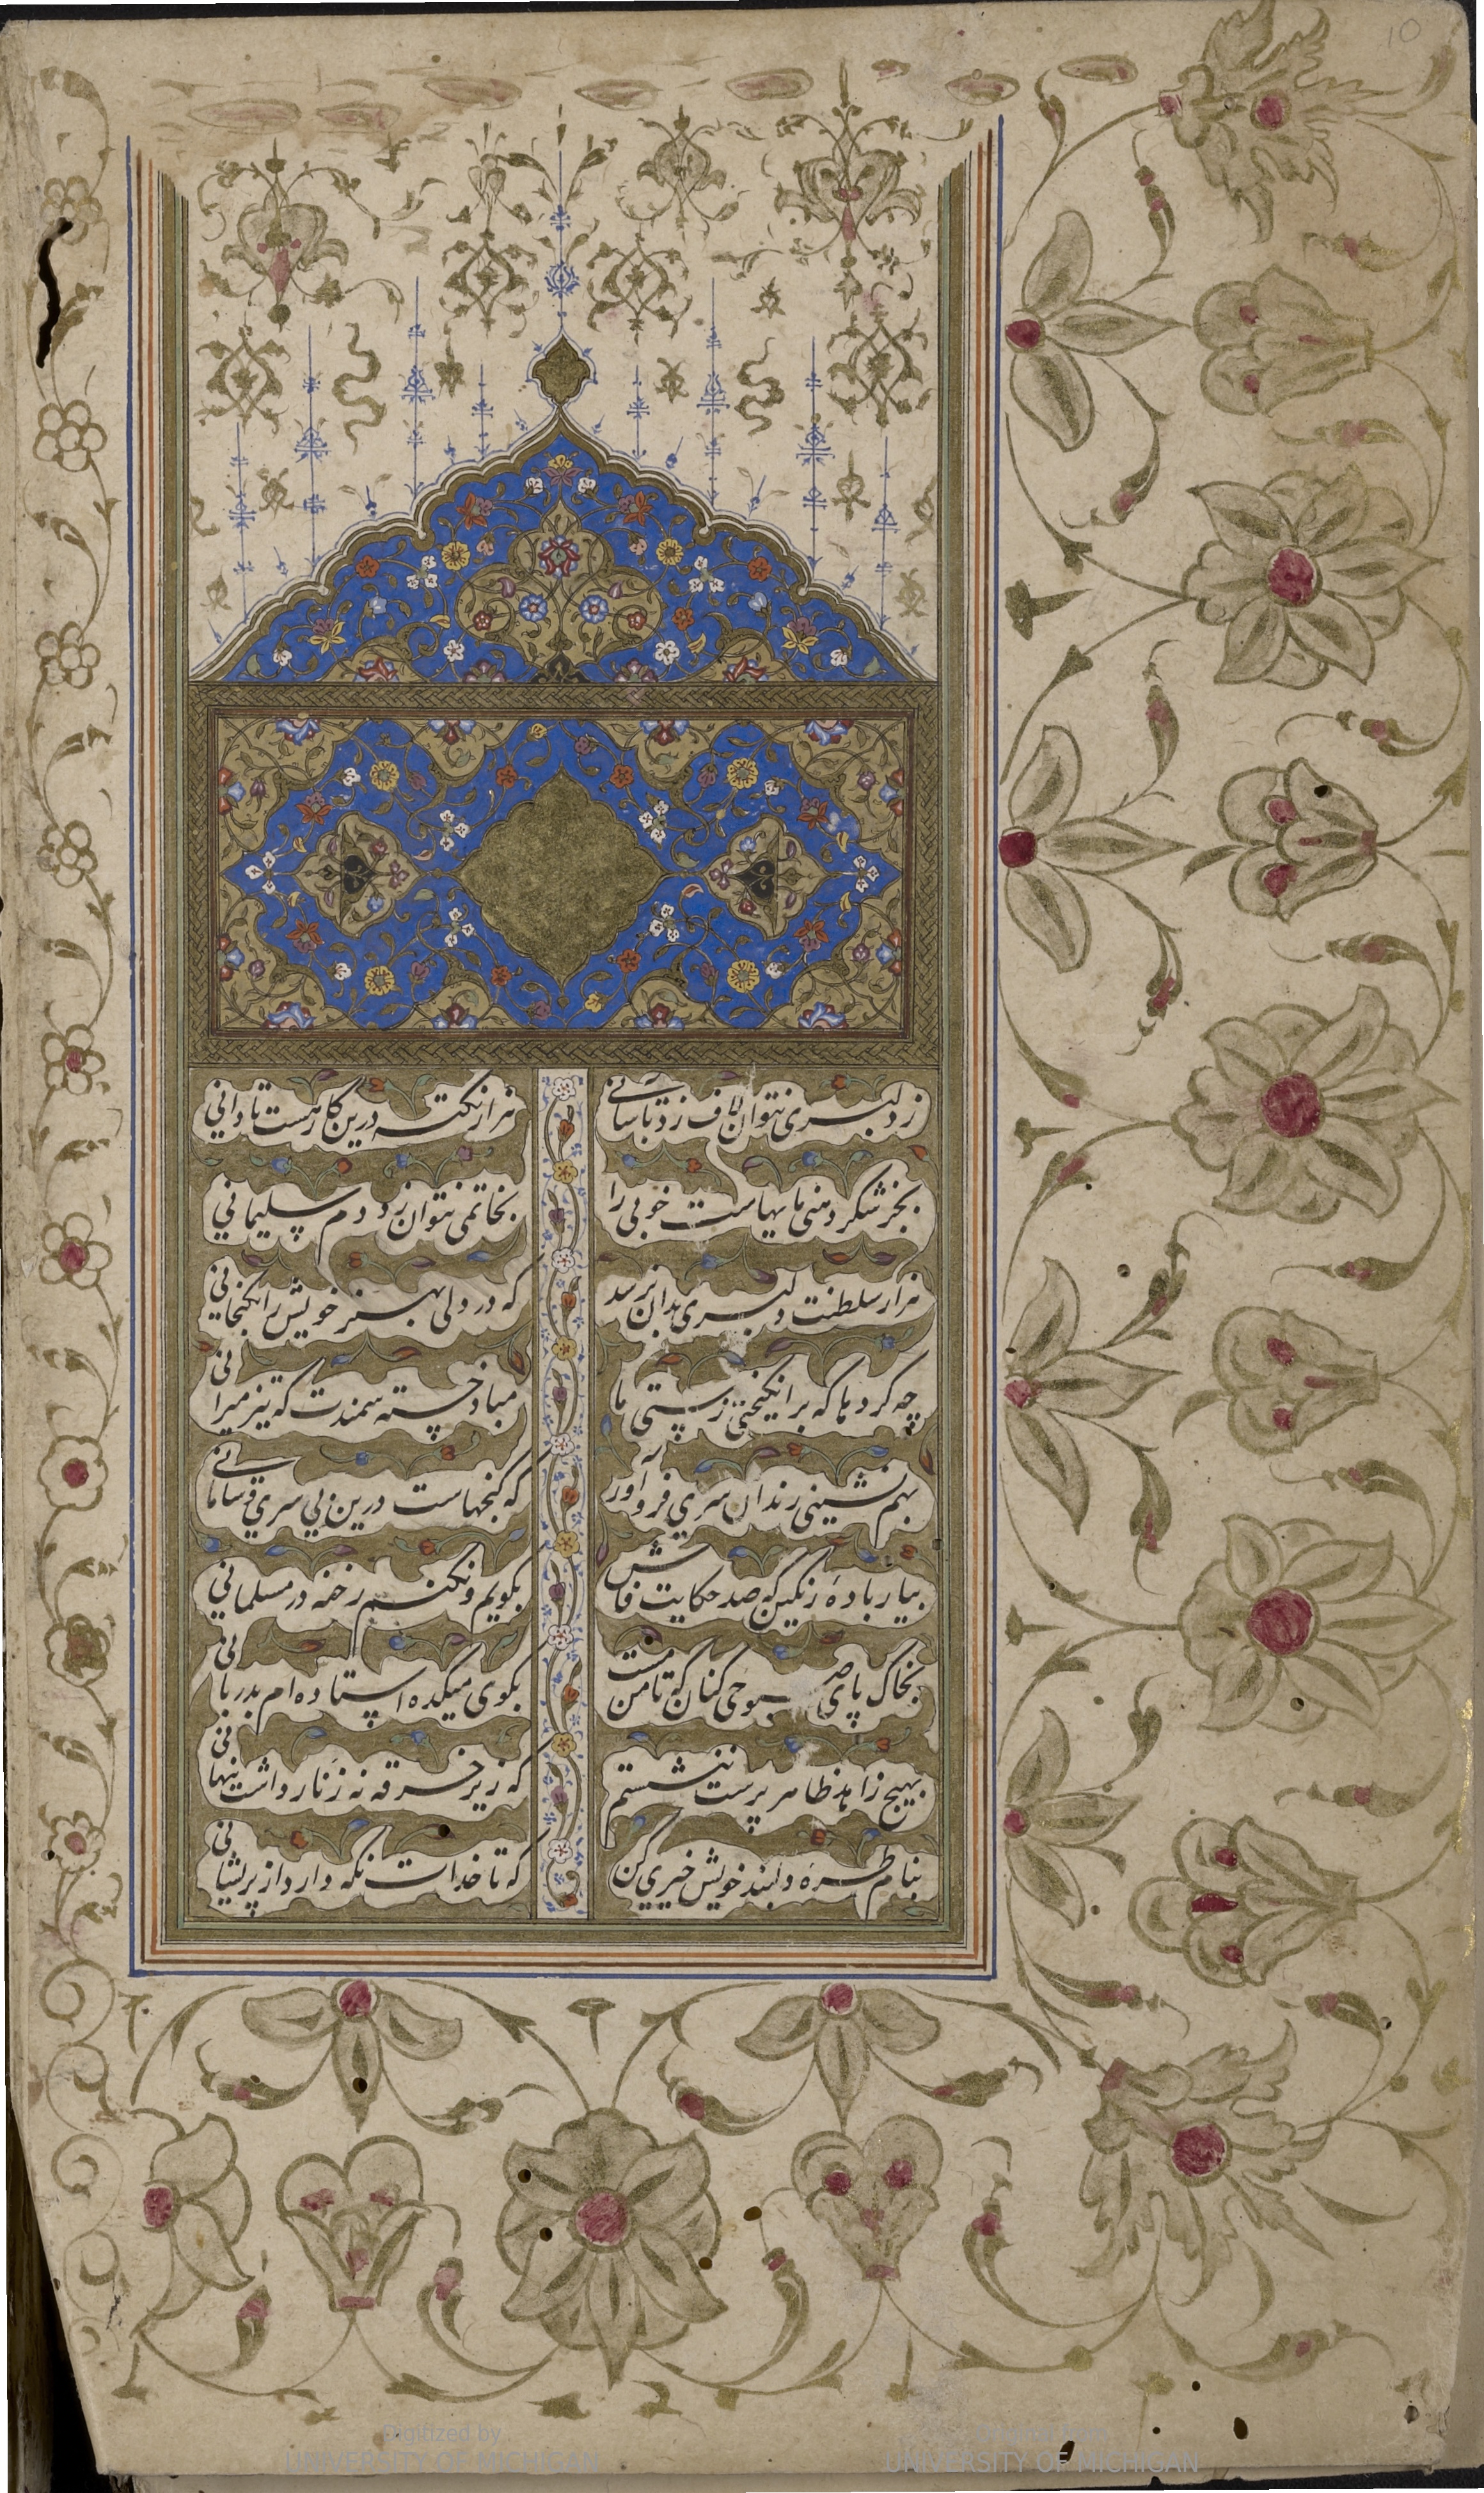 10
ز دلبری نتوان لاف زد بآسانی
هزار نکته درین کار هست تا دانی
بجز شکر دهنی مایهاست خوبی را
بخاتمی نتوان زد دم سلیمانی
هزار سلطنت دلبری بدان نرسد
که در دلی بهنر خویش را بگنجانی
چه گردها که برانگیختی ز پستی ما
مباد خسته سمندت که تیز میرانی
بهم نشینی رندان سری فرود آور
که گنجهاست درین بی سری و سامانی
بیار باده رنگین که صد حکایت فاش
بگویم و نکنم رخنه در مسلمانی
بخاک پای صبوحی کنان که تا من مست
بکوی میکده استاده ام بدربانی
بهیچ زاهد ظاهر پرست ننشستم
که زیر خرقه نه زنار داشت پنهانی
بنام طره دلبند خویش خیری کن
که تا خدات نگه دارد از پریشانی
Digitized by
UNIVERSITY OF MICHIGAN
Original from
UNIVERSITY OF MICHIGAN